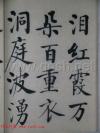 泪红霞万
朵百重衣
洞庭波湧